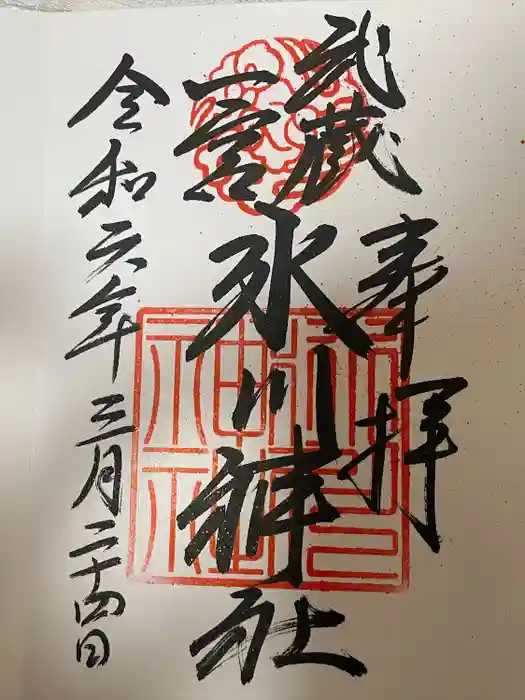 奉拝
武蔵
一宮
氷川神社
令和六年三月二十四日
氷川神社